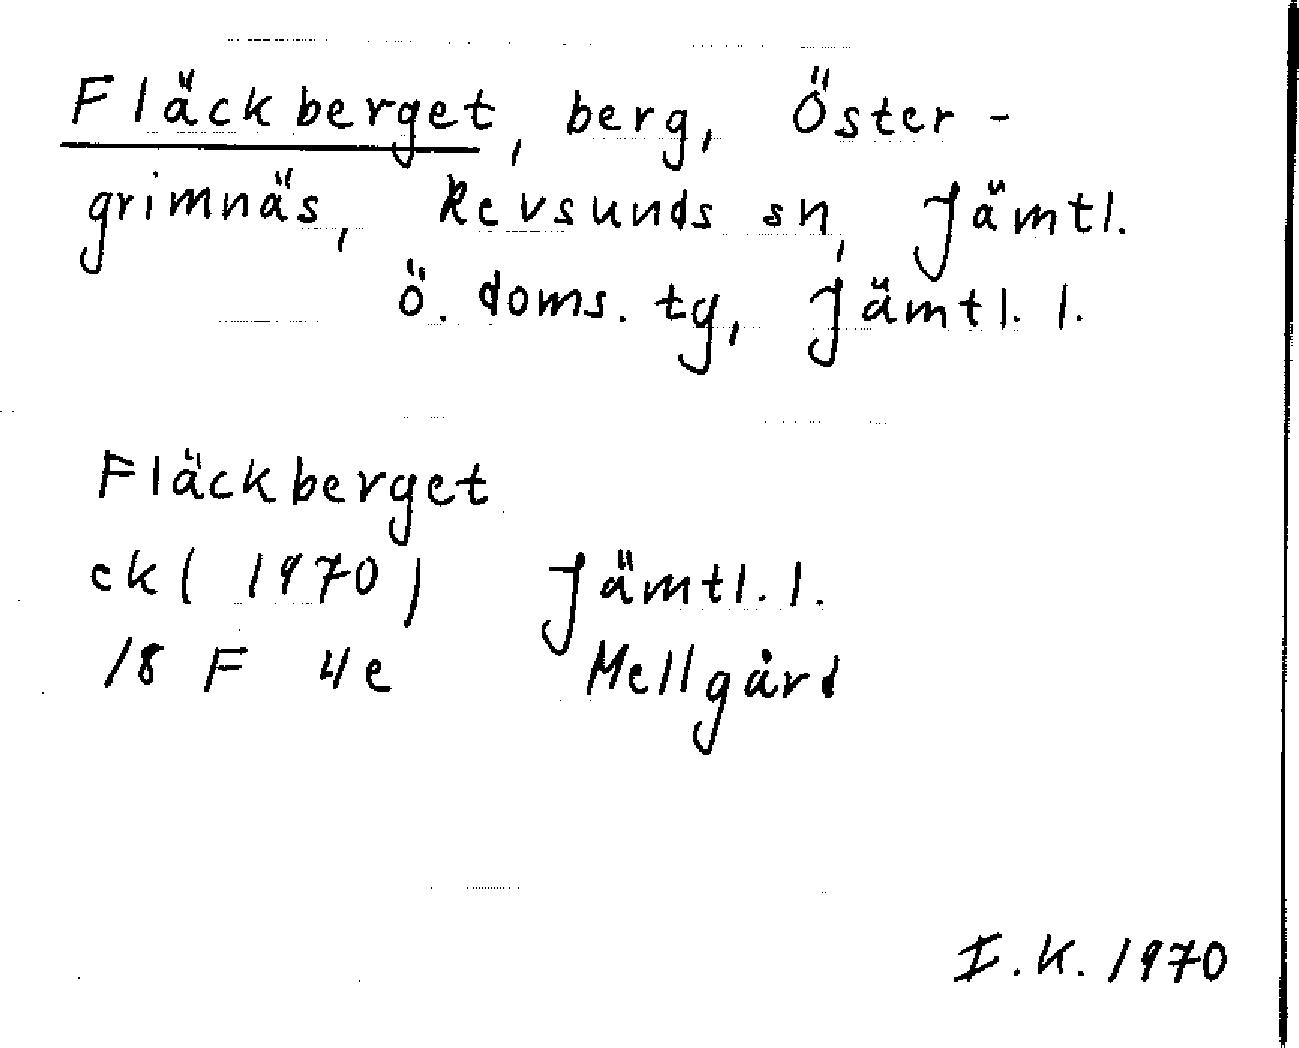 Fläckberget, berg, Öster-
grimnäs, Revsunds sn, Jämtl.
ö. doms. tg, Jämtl. l.
Fläckberget
ek ( 1970 ) Jämtl. l.
18 F 4e Mellgård
I.K. 1970